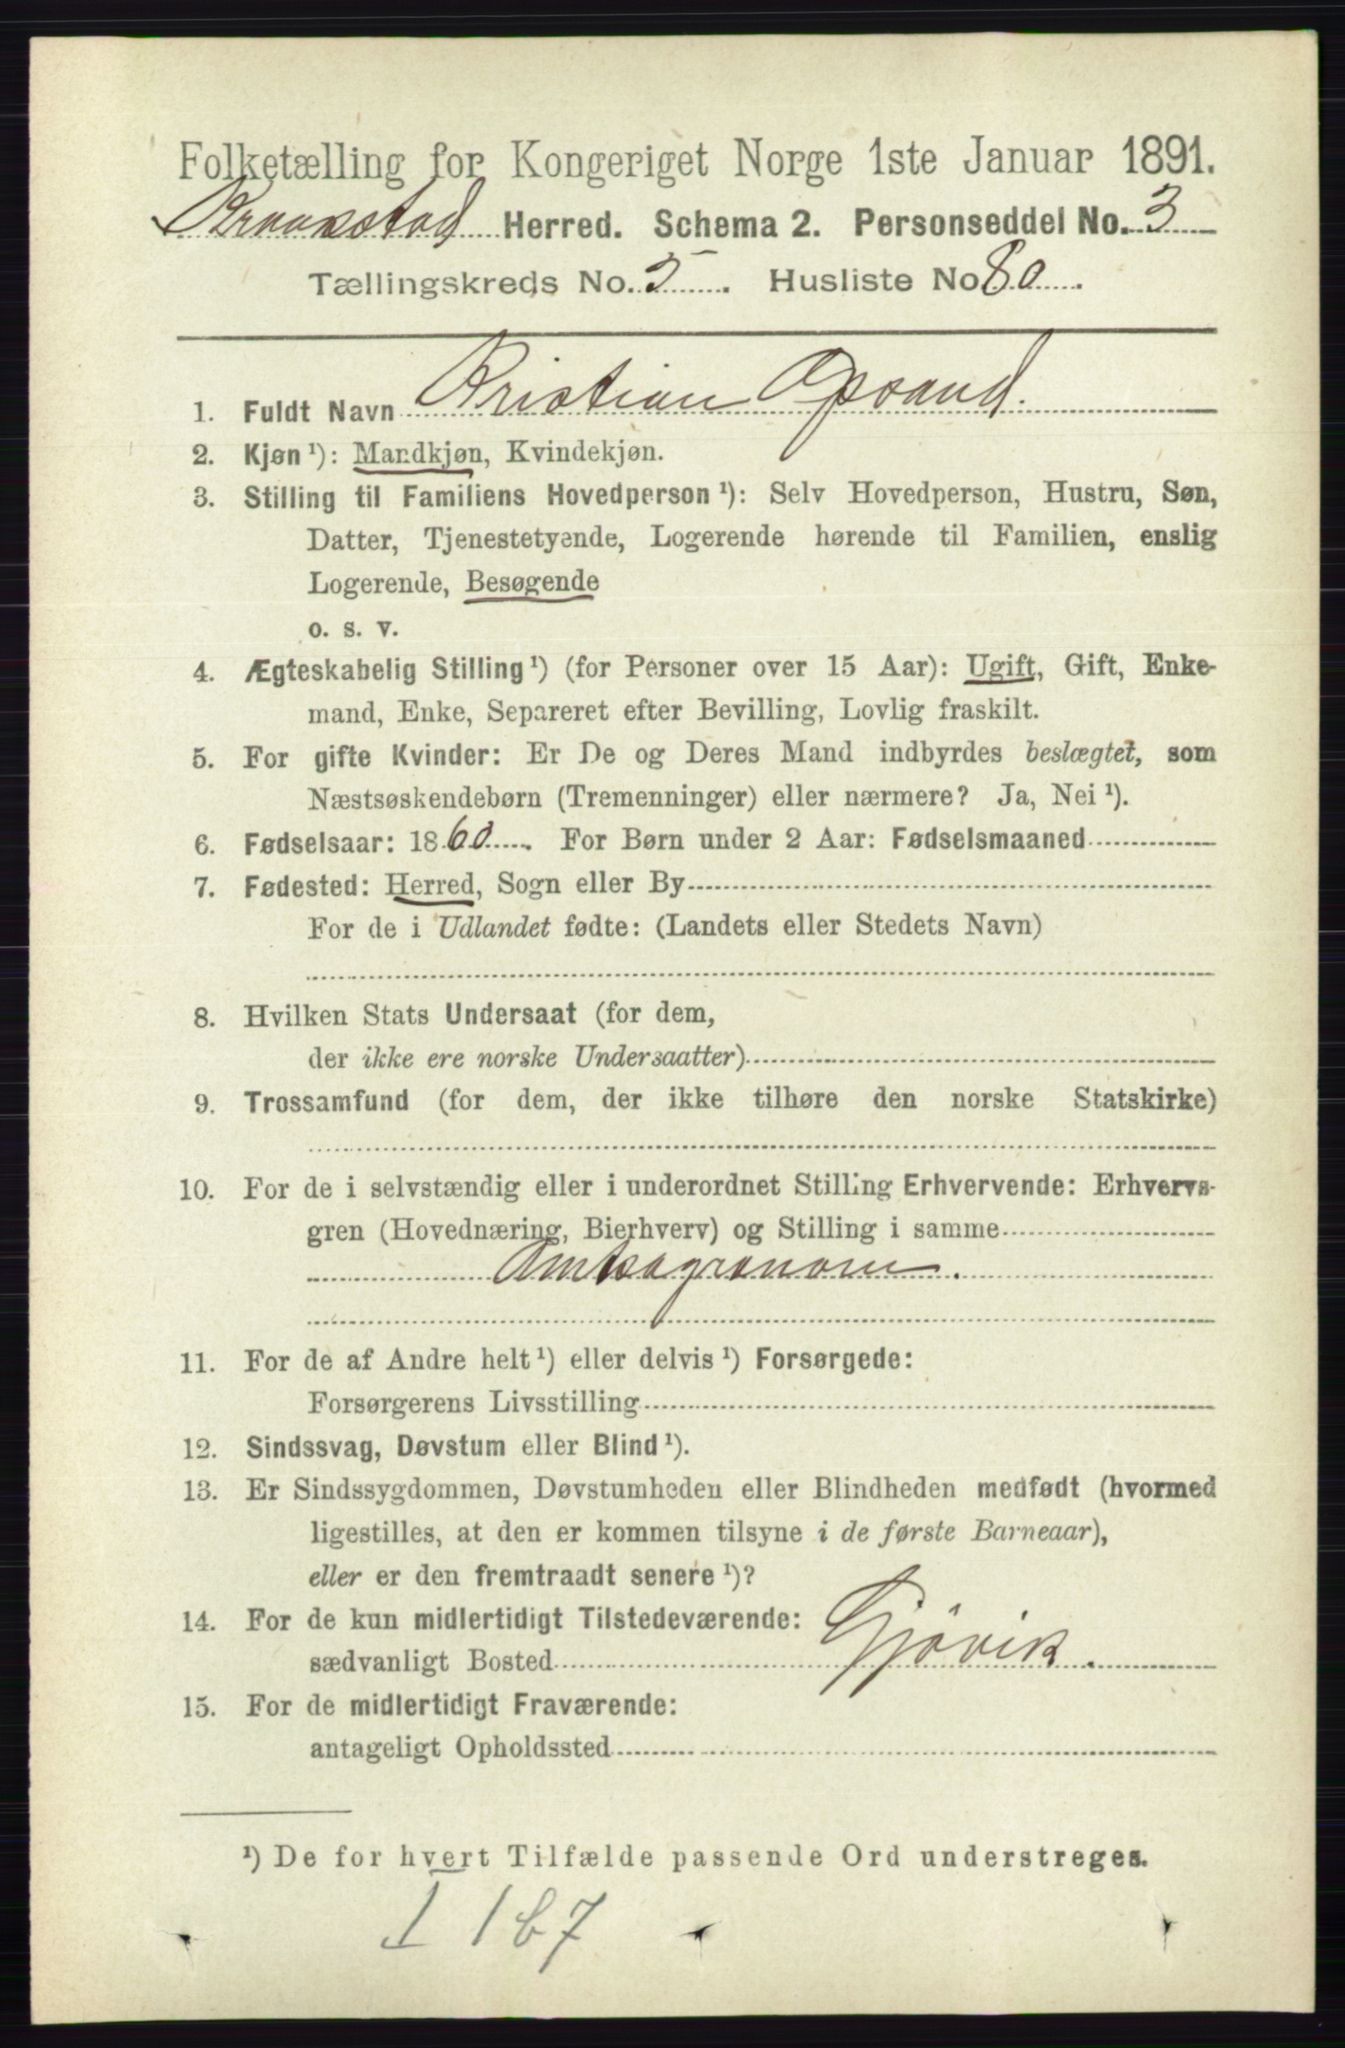 Folketælling for Kongeriget Norge 1ste Januar 1891.
Kraakstad Herred. Schema 2. Personseddel No. 3
Tællingskreds No. 5. Husliste No 80.
1. Fuldt Navn Kristian Opsand.
2. Kjøn ¹): Mandkjøn, Kvindekjøn.
3. Stilling til Familiens Hovedperson ¹): Selv Hovedperson, Hustru, Søn,
Datter, Tjenestetyende, Logerende hørende til Familien, enslig
Logerende, Besøgende
o. s. v.
4. Ægteskabelig Stilling ¹) (for Personer over 15 Aar): Ugift, Gift, Enke-
mand, Enke, Separeret efter Bevilling, Lovlig fraskilt.
5. For gifte Kvinder: Er De og Deres Mand indbyrdes beslægtet, som
Næstsøskendebørn (Tremenninger) eller nærmere? Ja, Nei ¹).
6. Fødselsaar: 1860. For Børn under 2 Aar: Fødselsmaaned
7. Fødested: Herred, Sogn eller By
For de i Udlandet fødte: (Landets eller Stedets Navn)
8. Hvilken Stats Undersaat (for dem,
der ikke ere norske Undersaatter)
9. Trossamfund (for dem, der ikke tilhøre den norske Statskirke)
10. For de i selvstændig eller i underordnet Stilling Erhvervende: Erhvervs-
gren (Hovednæring, Bierhverv) og Stilling i samme
Amtsagronom.
11. For de af Andre helt ¹) eller delvis ¹) Forsørgede:
Forsørgerens Livsstilling
12. Sindssvag, Døvstum eller Blind ¹).
13. Er Sindssygdommen, Døvstumheden eller Blindheden medfødt (hvormed
ligestilles, at den er kommen tilsyne i de første Barneaar),
eller er den fremtraadt senere ¹)?
14. For de kun midlertidigt Tilstedeværende:
sædvanligt Bosted Gjövik.
15. For de midlertidigt Fraværende:
antageligt Opholdssted
¹) De for hvert Tilfælde passende Ord understreges.
1 167